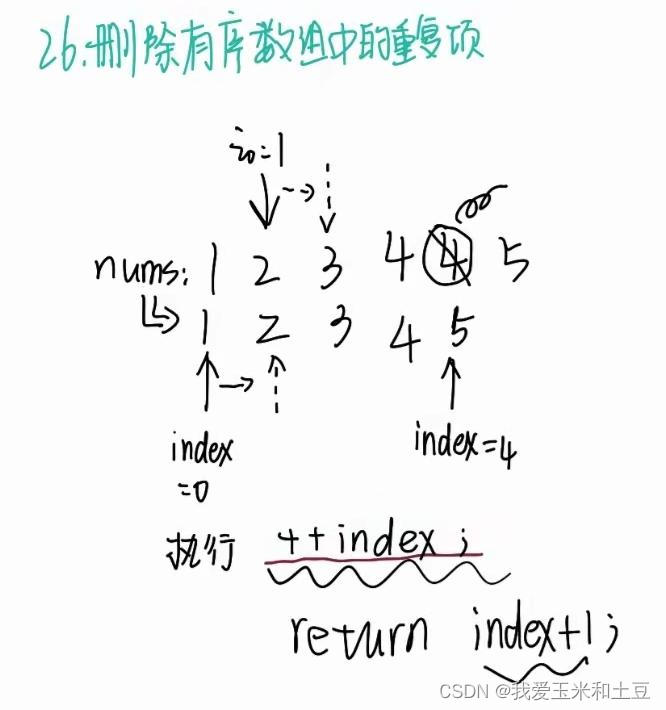 26.删除有序数组中的重复项
i=1
nums: 1 2 3 4 4 5
1 2 3 4 5
index
=0
index=4
执行 ++index;
return index+1;
CSDN @我爱玉米和土豆